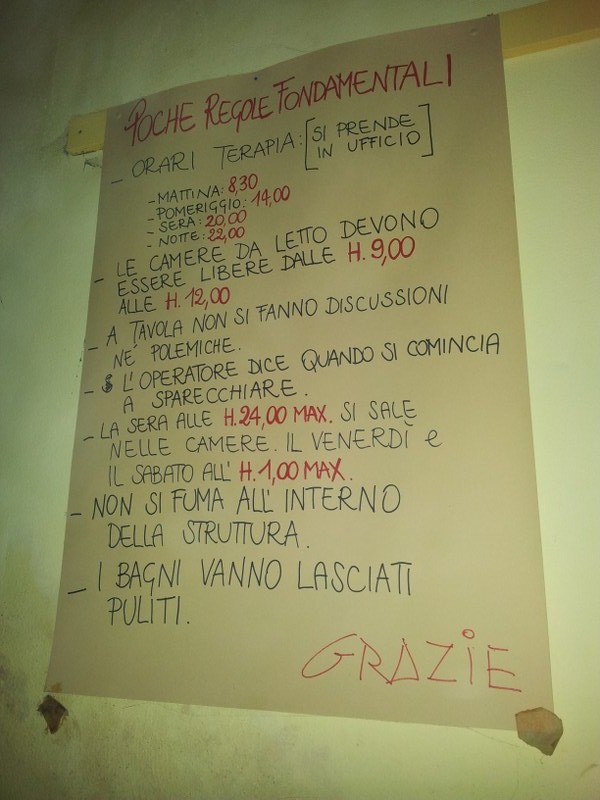 POCHE REGOLE FONDAMENTALI
- ORARI TERAPIA: [SI PRENDE
IN UFFICIO]
- MATTINA: 8,30
- POMERIGGIO: 14,00
- SERA: 20,00
- NOTTE: 22,00
- LE CAMERE DA LETTO DEVONO
ESSERE LIBERE DALLE H. 9,00
ALLE H. 12,00
- A TAVOLA NON SI FANNO DISCUSSIONI
NE' POLEMICHE.
- L'OPERATORE DICE QUANDO SI COMINCIA
A SPARECCHIARE.
- LA SERA ALLE H. 24,00 MAX. SI SALE
NELLE CAMERE. IL VENERDÌ e
IL SABATO ALL' H. 1,00 MAX.
- NON SI FUMA ALL'INTERNO
DELLA STRUTTURA.
- I BAGNI VANNO LASCIATI
PULITI.
GRAZIE